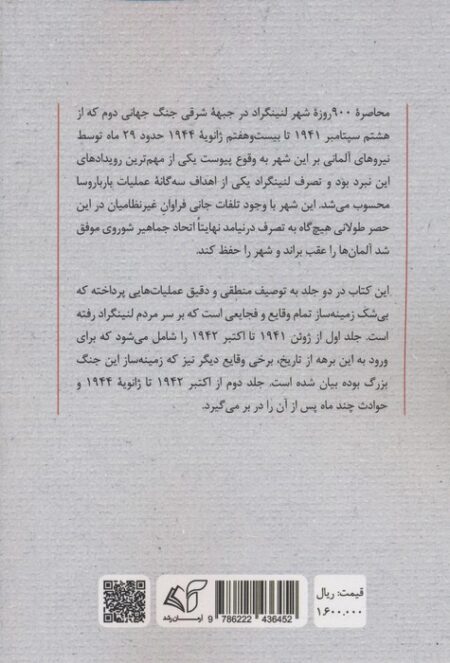 محاصرهٔ ۹۰۰روزهٔ شهر لنینگراد در جبههٔ شرقی جنگ جهانی دوم که از
هشتم سپتامبر ۱۹۴۱ تا بیست‌وهفتم ژانویهٔ ۱۹۴۴ حدود ۲۹ ماه توسط
نیروهای آلمانی بر این شهر به وقوع پیوست یکی از مهم‌ترین رویدادهای
این نبرد بود و تصرف لنینگراد یکی از اهداف سه‌گانهٔ عملیات بارباروسا
محسوب می‌شد. این شهر با وجود تلفات جانی فراوانِ غیرنظامیان در این
حصر طولانی هیچ‌گاه به تصرف درنیامد نهایتاً اتحاد جماهیر شوروی موفق
شد آلمان‌ها را عقب براند و شهر را حفظ کند.
این کتاب در دو جلد به توصیف منطقی و دقیق عملیات‌هایی پرداخته که
بی‌شک زمینه‌ساز تمام وقایع و فجایعی است که بر سر مردم لنینگراد رفته
است. جلد اول از ژوئن ۱۹۴۱ تا اکتبر ۱۹۴۲ را شامل می‌شود که برای
ورود به این برهه از تاریخ، برخی وقایع دیگر نیز که زمینه‌ساز این جنگ
بزرگ بوده بیان شده است. جلد دوم از اکتبر ۱۹۴۲ تا ژانویهٔ ۱۹۴۴ و
حوادث چند ماه پس از آن را در بر می‌گیرد.
قیمت: ریال
۱.۶۰۰.۰۰۰
9 786222 436452
آرمـان رشد